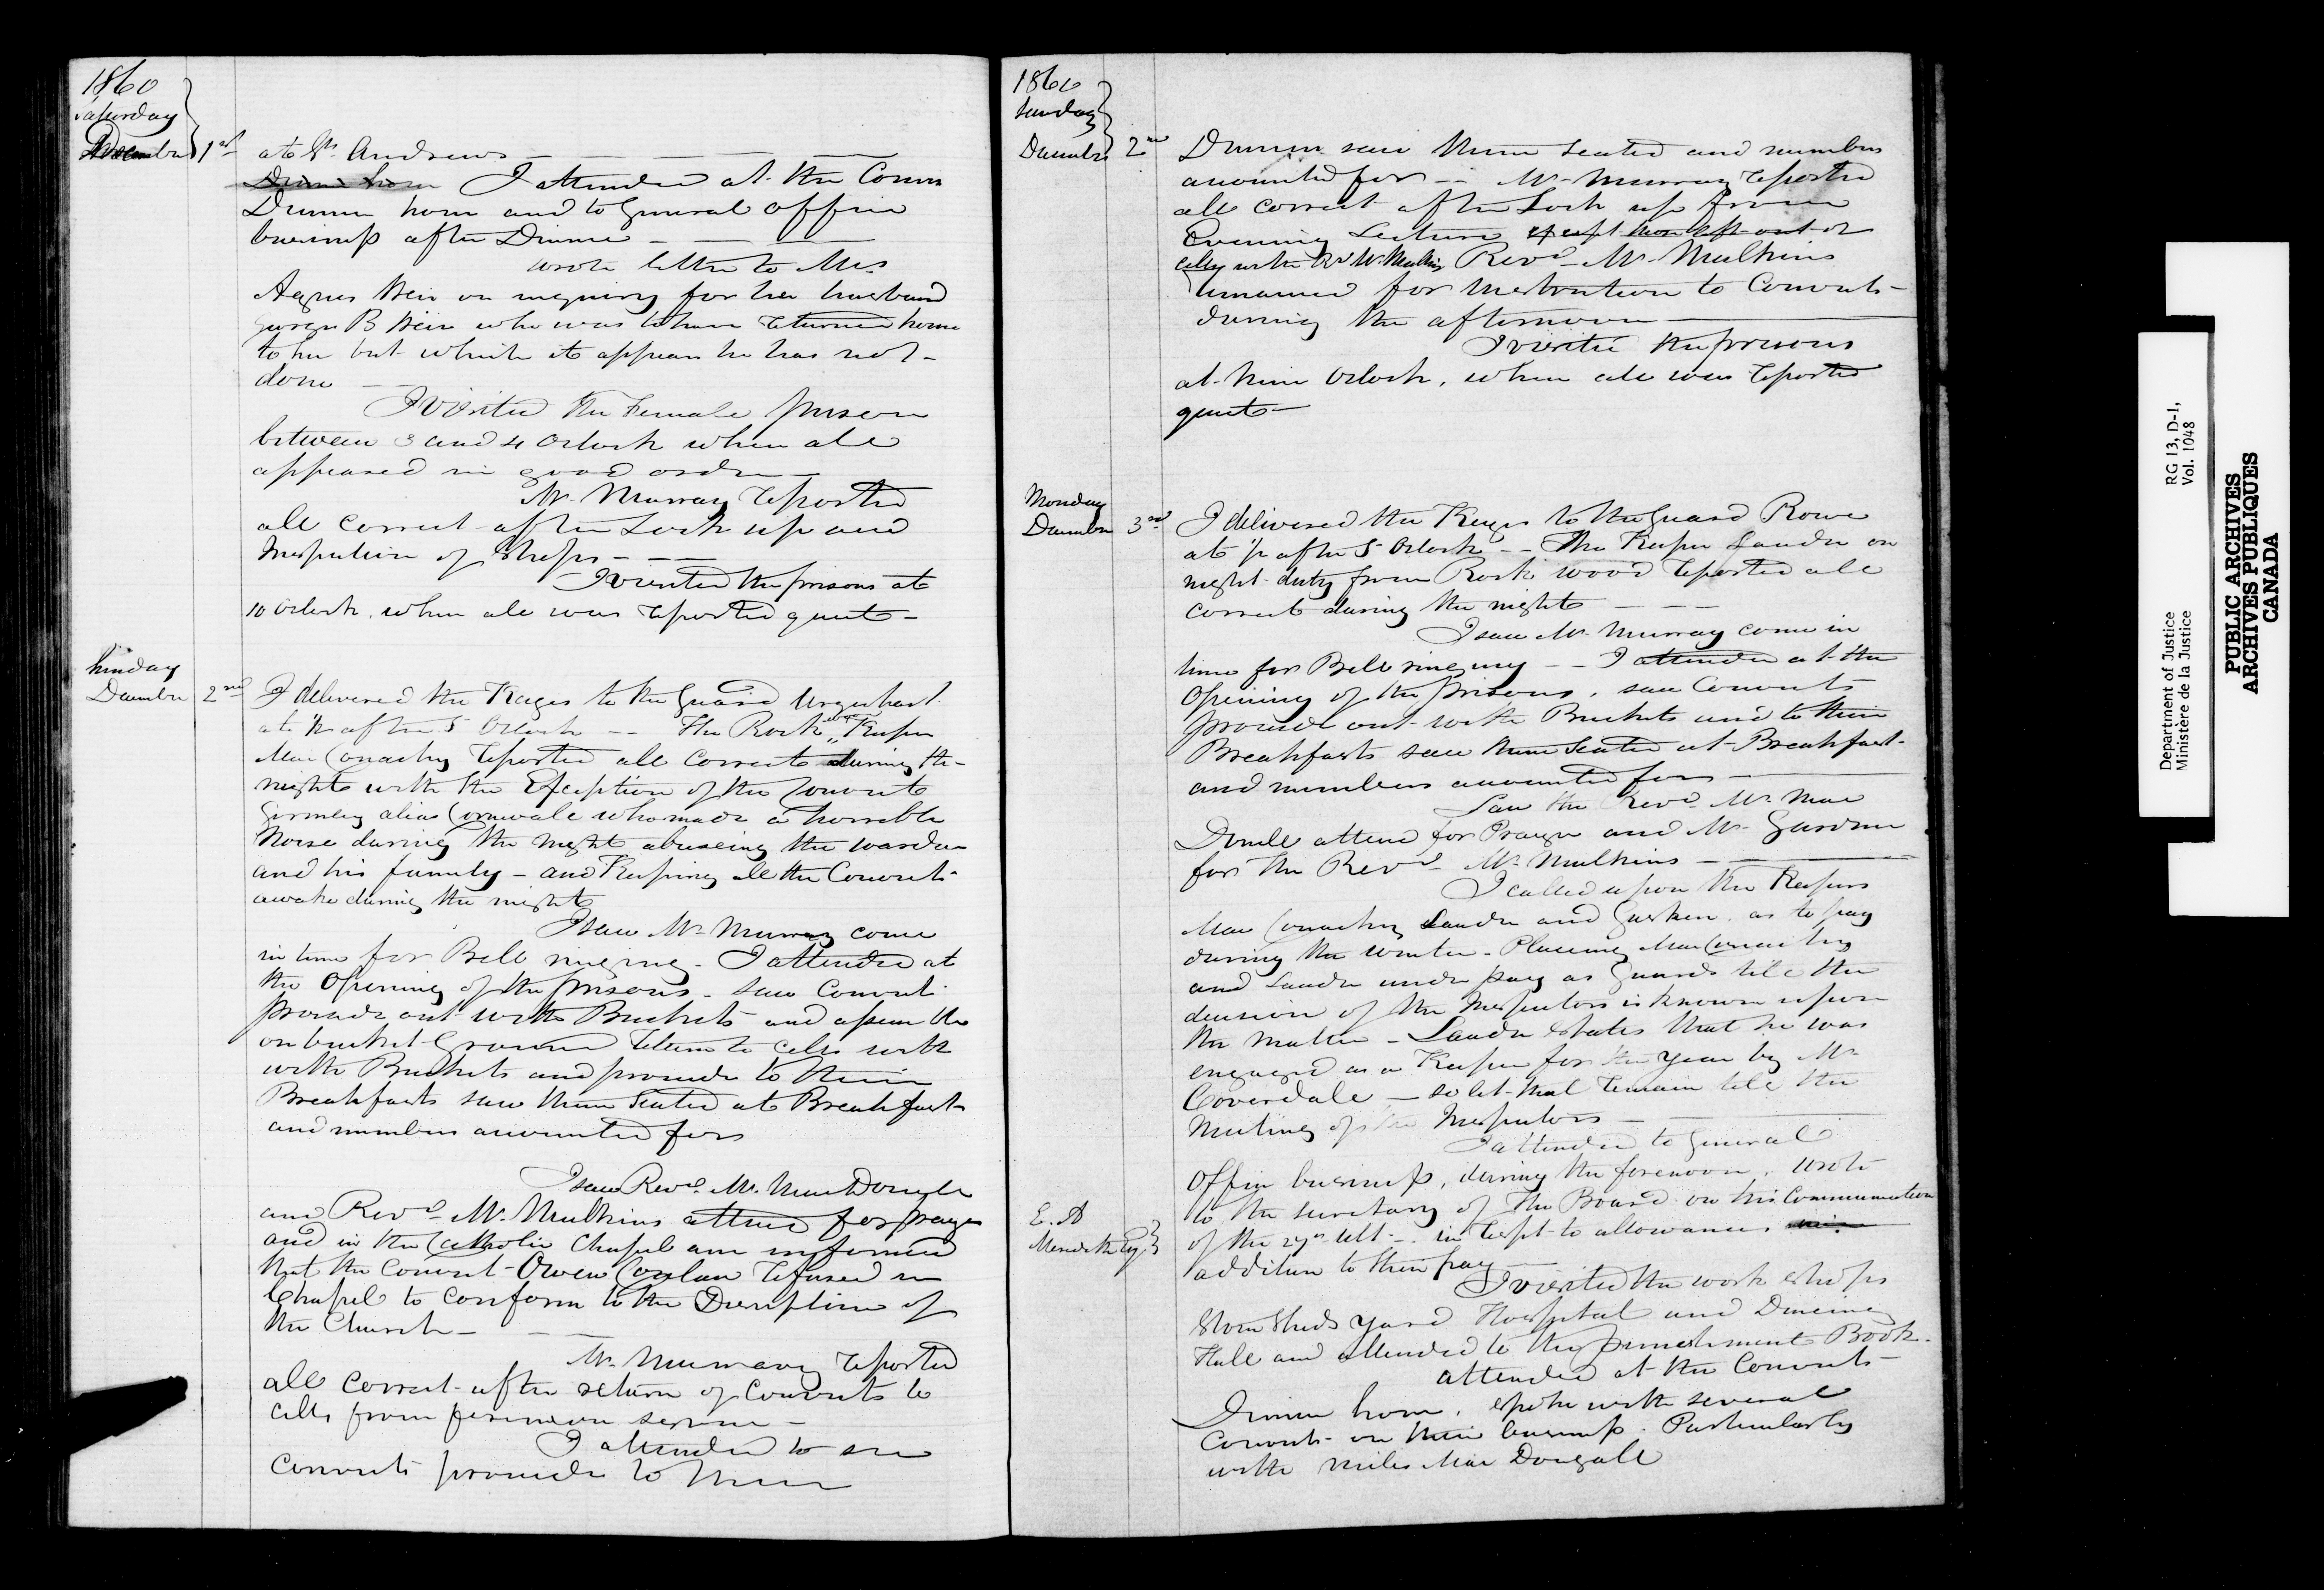 1860
Saturday
December 1st
at St. Andrews
Dinner hour I attended at the Convts
Dinner hour and to General office
business after Dinner
wrote letter to Mrs
Agnes Weir on inquiry for her husband
George B Weir who was to have returned home
to her but which it appears he has not
done
I visited the Female prison
between 3 and 4 Oclock when all
appeared in good order
Mr. Murray reported
all correct after Lock up and
Inspection of Shops
I visited the prisons at
10 Oclock. when all was reported quiet
Sunday
December 2nd
I delivered the Keyes to the Guard Urquhart
at ½ after 5 Oclock -- The Rock wood Keeper
Mac Conachy reported all correct during the
night with the Exception of the Convict
Gormley alias Cornwale who made a horrible
Noise during the night abuseing the warden
and his family - and Keeping all the Convicts
awake during the night
I saw Mr Murray come
in time for Bell ringing. I attended at
the Opening of the prisons. saw Convicts
proceede out with Buckets and assemble
on bucket Ground return to cells with
with Buckets and proceede to their
Breakfasts saw them seated at Breakfast
and numbers accounted for
I saw Revd. Mr. MacDonell
and Revd Mr. Mulkins attend for prayer
and in the Catholic Chapel am informed
that the Convict Owen Conlan refused in
Chapel to conform to the Discipline of
the Church
Mr. Murray reported
all correct after return of Convicts to
cells from forenoon service
I attended to see
Convicts proceede to their
1860
Sunday
December 2nd
Dinner saw them seated and numbers
accounted for Mr Murray reported
all correct after Lock up from
Evening Lecture except those left out of
cells with Rd Mr Mulkins Revd Mr Mulkins
remained for Instruction to Convicts
during the afternoon
I visited the prisons
at Nine Oclock. when all was reported
quiet
Monday
December 3rd
I delivered the Keyes to the Guard Rowe
at ½ after 5 Oclock -- The Keeper Lauder on
night duty from Rock wood reported all
correct during the night
I saw Mr Murray come in
time for Bell ringing -- I attended at the
Opening of the prisons. saw Convicts
proceede out with Buckets and to their
Breakfasts saw them seated at Breakfast
and numbers accounted for
Saw the Revd. Mr. Mac
Donell attend for Prayer and Mr. Gardner
for the Revd Mr. Mulkins
I called upon the Keepers
Mac Conachy Lauder and Gaskin. as to pay
during the winter. Placeing MacConachy
and Lauder under pay as Guards till the
decision of the Inspectors is known upon
the matter - Lauder states that he was
engaged as a Keeper for the year by Mr
Coverdale - so let that remain till the
Meeting of the Inspectors
I attended to General
Office business, during the forenoon. wrote
to the Secretary of The Board on his Communication
of the 27th ult. in respt to allowances
addition to their pay
E. A
Meredith Esq
I visited the work shops
Stone Sheds yard Hospital and Dineing
Hall and attended to the punishment Book.
attended at the Convicts
Dinner hour. spoke with several
Convicts on their business. Particularly
with Miles Mac Dougall
Department of Justice
Ministère de la Justice
RG 13, D-1,
Vol. 1048
PUBLIC ARCHIVES
ARCHIVES PUBLIQUES
CANADA